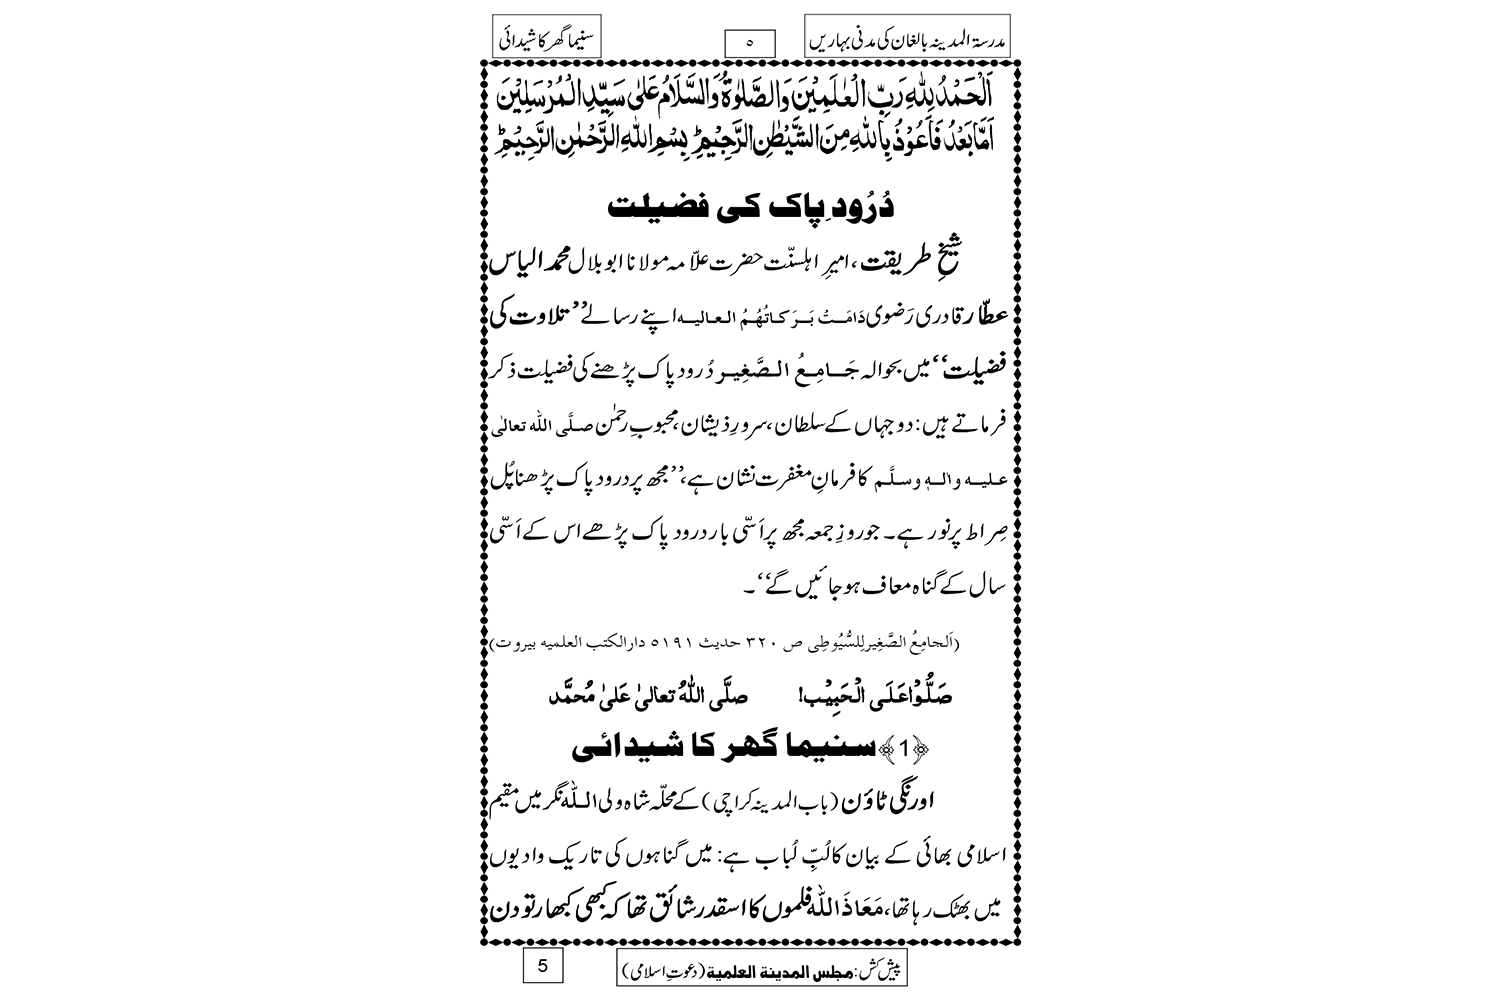 مدرسۃ المدینہ بالغان کی مدنی بہاریں
۵
سنیما گھر کا شیدائی
اَلْحَمْدُ لِلّٰہِ رَبِّ الْعٰلَمِیْنَ وَالصَّلٰوۃُ وَالسَّلَامُ عَلٰی سَیِّدِ الْمُرْسَلِیْنَ
اَمَّا بَعْدُ فَاَعُوْذُ بِاللہِ مِنَ الشَّیْطٰنِ الرَّجِیْمِ ؕ بِسْمِ اللہِ الرَّحْمٰنِ الرَّحِیْمِ ؕ
دُرُودِ پاک کی فضیلت
شیخِ طریقت، امیرِ اہلسنّت حضرت علّامہ مولانا ابو بلال محمد الیاس
عطّار قادری رَضوی دَامَتْ بَرَکاتُھُمُ العالیہ اپنے رسالے ’’تلاوت کی
فضیلت‘‘ میں بحوالہ جَامِعُ الصَّغِیر دُرود پاک پڑھنے کی فضیلت ذکر
فرماتے ہیں: دو جہاں کے سلطان، سرورِ ذیشان، محبوبِ رحمٰن صلَّی اللہ تعالیٰ
علیہ واٰلہٖ وسلَّم کا فرمانِ مغفرت نشان ہے، ’’مجھ پر درود پاک پڑھنا پُل
صِراط پر نور ہے۔ جو روزِ جمعہ مجھ پر اَسّی بار درود پاک پڑھے اس کے اَسّی
سال کے گناہ معاف ہو جائیں گے‘‘۔
(اَلجامِعُ الصَّغِیر لِلسُّیُوطِی ص ۳۲۰ حدیث ۵۱۹۱ دارالکتب العلمیہ بیروت)
صَلُّوْا عَلَی الْحَبِیْب! صلَّی اللہُ تعالیٰ عَلیٰ مُحَمَّد
﴿1﴾ سنیما گھر کا شیدائی
اورنگی ٹاؤن (باب المدینہ کراچی) کے محلّہ شاہ ولی اللہ نگر میں مقیم
اسلامی بھائی کے بیان کا لُبِّ لُباب ہے: میں گناہوں کی تاریک وادیوں
میں بھٹک رہا تھا، مَعَاذَ اللہ فلموں کا اسقدر شائق تھا کہ کبھی کبھار تو دن
پیش کش: مجلس المدینۃ العلمیۃ (دعوتِ اسلامی)
5